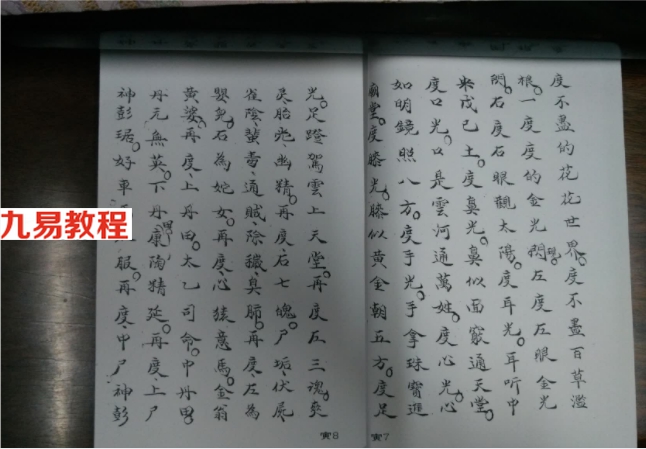 度不盡的花花世界。度不盡百草滥
根。一度度的金光閃。左度左眼金光
閃。右度右眼觀太陽。度耳光。耳听中
央戊己土。度鼻光。鼻似面竅通天堂。
度口光。口是雲河通萬姓。度心光。心
如明鏡照八方。度手光。手拿珠寳進
廟堂。度膝光。膝似黄金朝五方。度足
光。足蹬駕雲上天堂。再度左三魂。爽
灵、胎光、幽精。再度右七魄。尸垢、伏尿、
雀陰、蜚毒、通賊、除穢、臭肺。再度左為
嬰兒。右為姹女。再度心猿意馬。金翁
黄婆。再度上丹田。太乙司命。中丹田。
丹元無英。下丹康陶精延。再度上尸
神彭琚。好車服。再度中尸神彭
寅8
寅7
九易教程